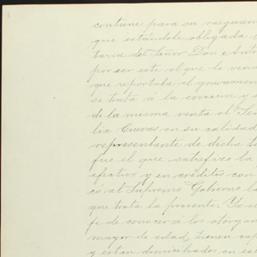 contiene para su resguardo
que estándole obligada
taria del Señor Don Anto
por ser este el que le ven
que reportaba el gravamen
se trata á la censura y
de la misma venta el Se
lio Cuevas en su calidad
representante de dicho
fue el que satisfizo la
efectivo y en créditos con
có al Supremo Gobierno la
que trata la presente. Yo el
fe de conocer á los otorgan
mayor de edad, tienen cap
y están domiciliados en es